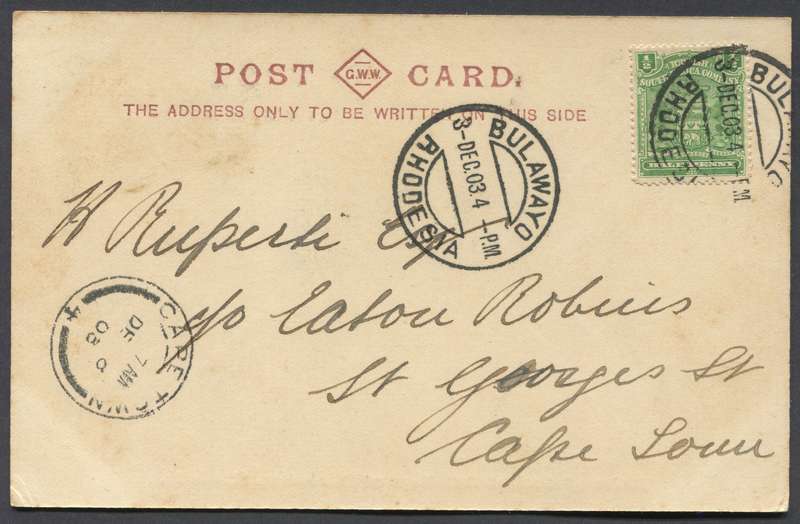 POST G.W.W. CARD.
THE ADDRESS ONLY TO BE WRITTEN ON THIS SIDE
½ SOUTH AFRICA COMPANY
HALF PENNY
BULAWAYO
3-DEC.03.4-P.M.
RHODESIA
BULAWAYO
3-DEC.03.4-P.M.
RHODESIA
H Ruperti Esq
c/o Eaton Robins
St Georges St
Cape Town
CAPE TOWN
7 AM
DE 6
03